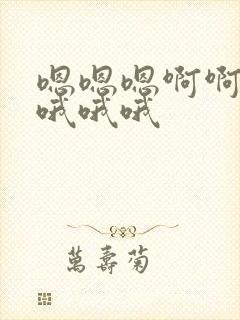 嗯嗯嗯啊啊
哦哦哦
萬壽菊